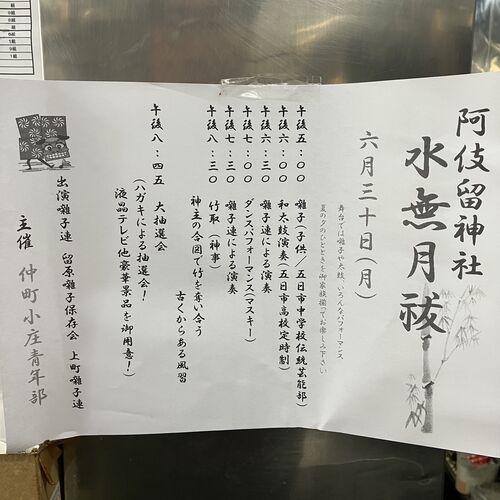 阿伎留神社
水無月祓
六月三十日(月)
舞台では囃子や太鼓、いろんなパフォーマンス
夏の夕のひとときを御家族揃ってお楽しみ下さい
午後五:〇〇 囃子(子供/五日市中学校伝統芸能部)
午後六:〇〇 和太鼓演奏(五日市高校定時制)
午後六:三〇 囃子連による演奏
午後七:〇〇 ダンスパフォーマンス(マスキー)
午後七:三〇 囃子連による演奏
午後八:三〇 竹取(神事)
神主の合図で竹を奪い合う
古くからある風習
午後八:四五 大抽選会
(ハガキによる抽選会!
液晶テレビ他豪華景品を御用意!)
出演囃子連 留原囃子保存会 上町囃子連
主催 仲町小庄青年部